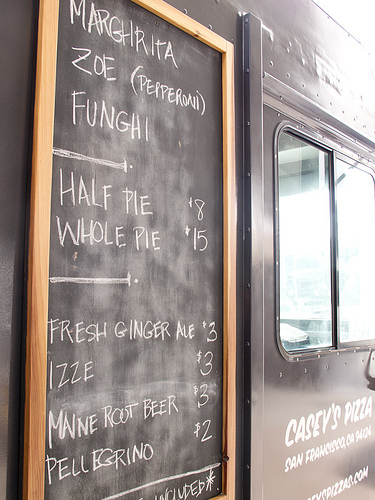 MARGHRITA
ZOE (PEPPERONI)
FUNGHI
HALF PIE $8
WHOLE PIE $15
FRESH GINGER ALE $3
IZZE $3
MAINE ROOT BEER $3
PELLEGRINO $2
INCLUDED*
CASEY'S PIZZA
SAN FRANCISCO, CA 94124